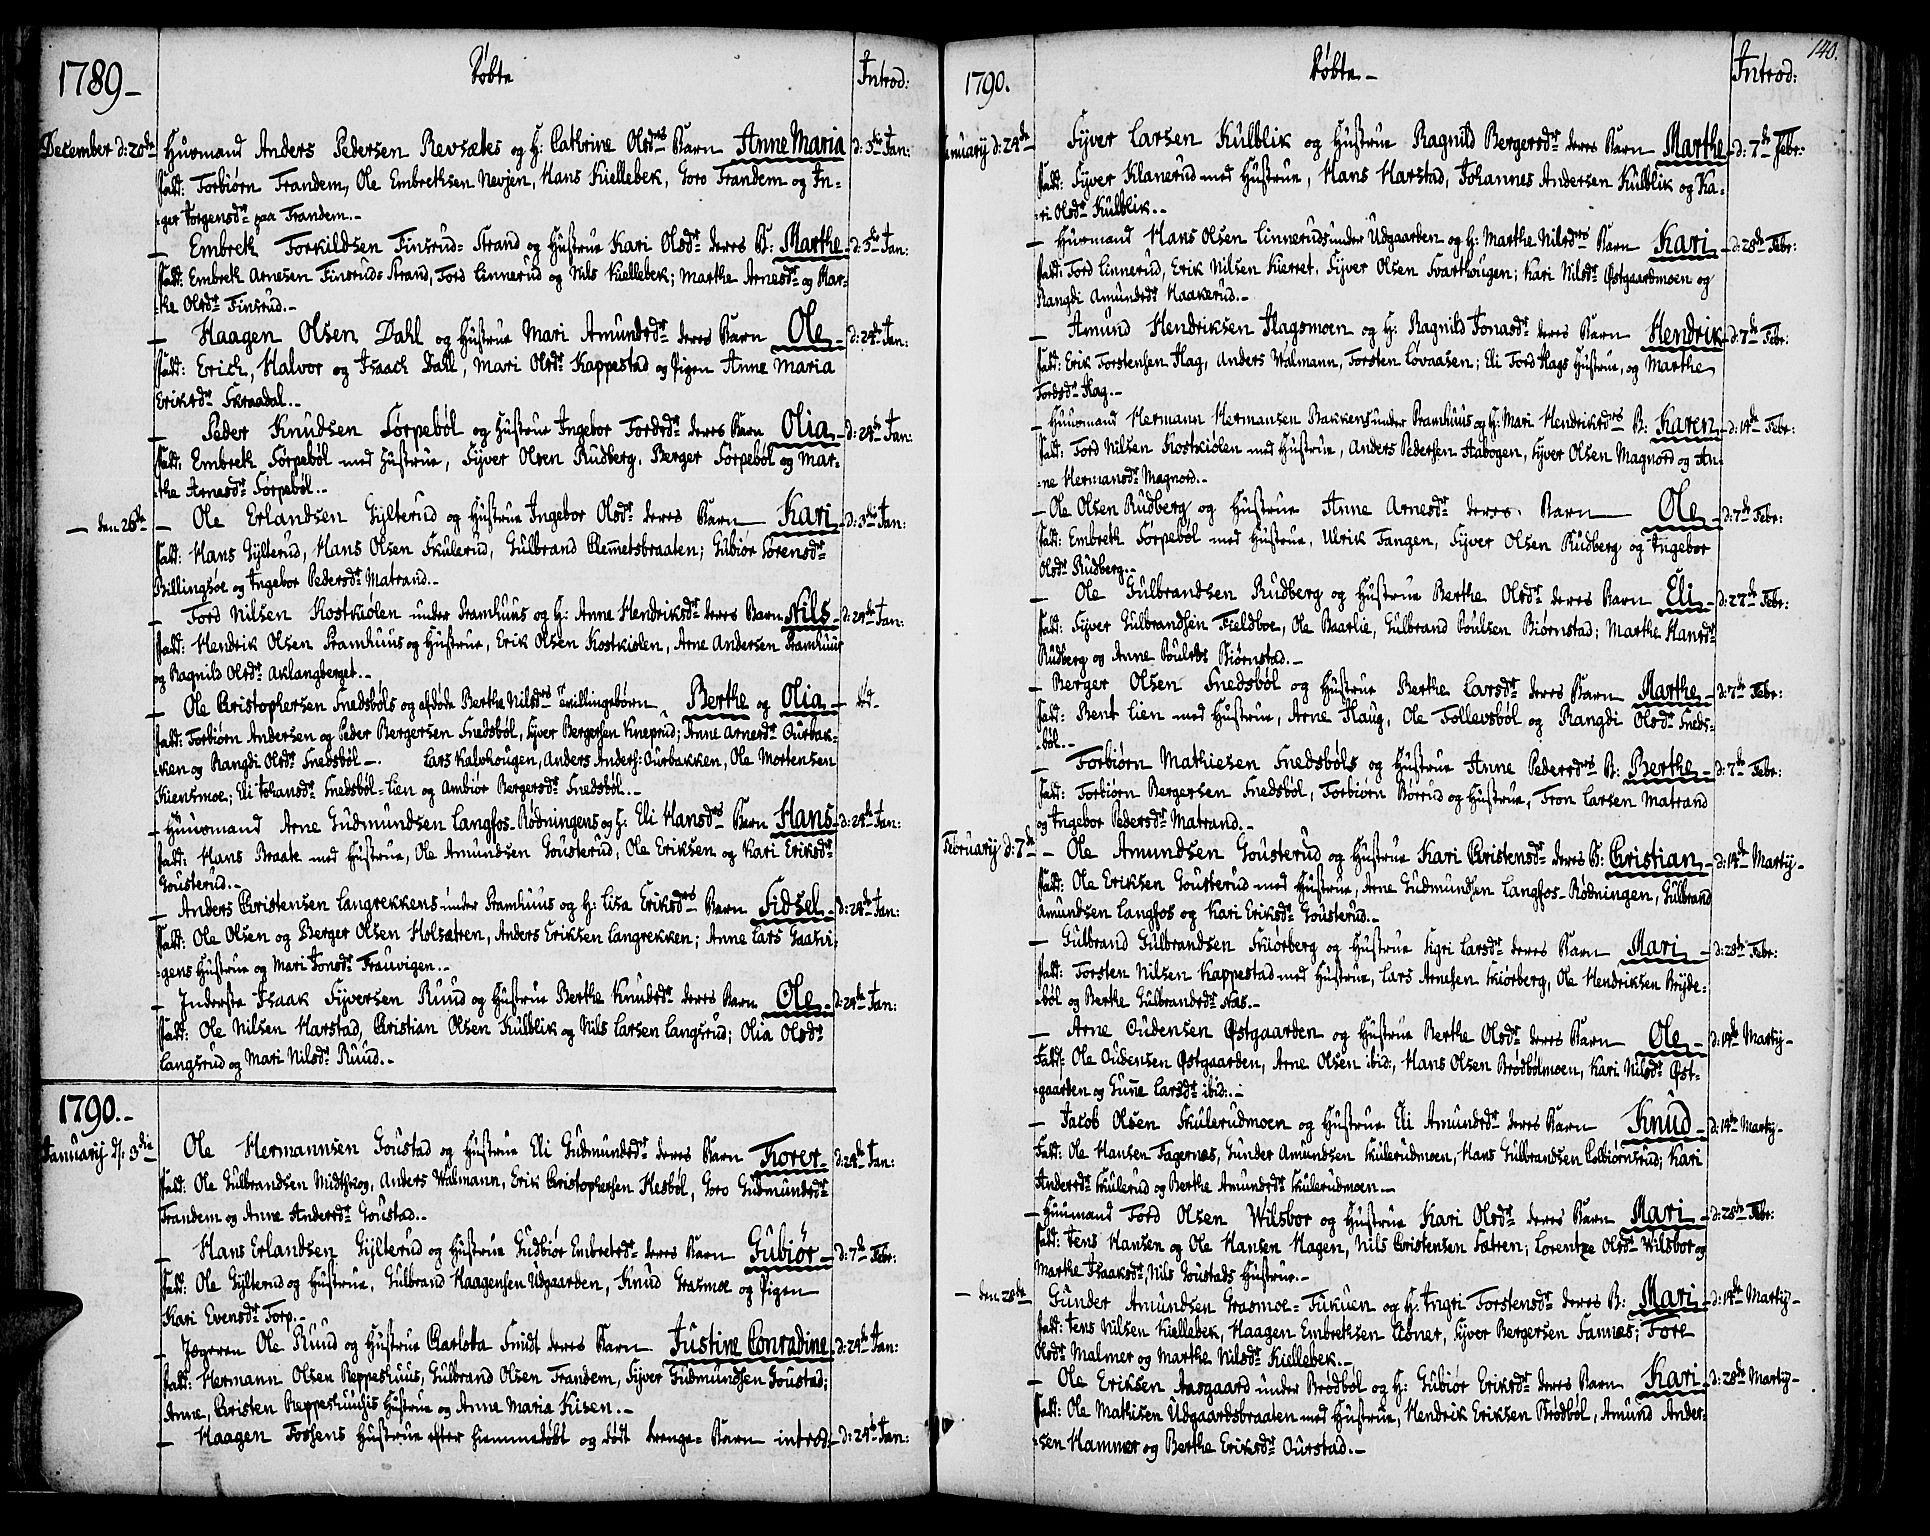 1789 -
Døbte
Introd:
December d: 20de Huusmand Anders Pedersen Revsætes og H: Cathrine Olsdrs Barn Anne Maria d: 3die Jan:
Fadd: Torbiørn Trandem, Ole Embretsen Nevjen, Hans Kiellebek, Goro Trandem og In-
-ger Jorgensdr paa Trandem. -
- Embrek Torkildsen Finsrud-Strand og Hustrue Kari Olsdr deres B: Marthe d: 3die Jan:
Fadd: Embrek Arnesen Finsrud-Strand, Tord Linnerud og Nils Kiellebek; Marthe Arnesdr og Mar-
-the Olsdr Finsrud. -
- Haagen Olsen Dahl og Hustrue Mari Amundsdr deres Barn Ole d: 24de Jan:
Fadd: Erich, Halvor og Isaach Dahl, Mari Olsdr Kappestad og Pigen Anne Maria
Eriksdr Skraadal. -
- Peder Knudsen Sørpebøl og Hustrue Ingebor Tordsdr deres Barn Olia d: 24de Jan:
Fadd: Embrek Sørpebøl med Hustrue, Syver Olsen Rudberg, Berger Sørpebøl og Mar-
-the Arnesdr Sørpebøl. -
- den 26de - Ole Erlandsen Gylterud og Hustrue Ingebor Olsdr deres Barn Kari d: 3die Jan:
Fadd: Hans Gylterud, Hans Olsen Skulerud, Gulbrand Clemetsbraaten; Gubiør Sørensdr
Billingsøe og Ingebor Pedersdr Matrand. -
- Tord Nilsen Kostkiølen under Framhuus og H: Anne Hendriksdr deres Barn Nils d: 24de Jan:
Fadd: Hendrik Olsen Framhuus og Hustrue, Erik Olsen Kostkiølen, Arne Andersen Framhuus
og Ragnild Olsdr Aklangberget. -
- Ole Christophersen Snedsbøls og afdøde Berthe Nilsdrs Tvillingebørn, Berthe og Olia -
Fadd: Torbiørn Andersen og Peder Bergersen Snedsbøl, Syver Bergersen Kneprud; Anne Arnesdr Ourbak-
-ken og Rangdi Olsdr Snedsbøl -. Lars Kalvhougen, Anders Anders: Ourbakken, Ole Mortensen
Kiensmoe; Eli Johansdr Snedsbøl-Lien og Ambiør Bergersdr Snedsbøl. -
- Huusmand Arne Gudmundsen Langfos-Rødningens og H: Eli Hansdrs Barn Hans d: 24de Jan:
Fadd: Hans Braate med Hustrue, Ole Amundsen Gousterud, Ole Eriksen og Kari Eriksdr
Gousterud. -
- Anders Christensen Langrekkens under Framhuus og H: Lisa Eriksdrs Barn Sidsel d: 24de Jan:
Fadd: Ole Olsen og Berger Olsen Holsætren, Anders Eriksen Langrekken; Anne Lars Gaasvi-
-gens Hustrue og Mari Jonsdr Trauvigen. -
- Inderste Isaak Syversen Ruud og Hustrue Berthe Knudsdr deres Barn Ole d: 24de Jan:
Fadd: Ole Nilsen Harstad, Christian Olsen Kulblik og Nils Larsen Langsrud; Olia Olsdr
Langsrud og Mari Nilsdr Ruud. -
1790. -
Januarij d: 3die Ole Hermannsen Goustad og Hustrue Eli Gudmundsdr deres Barn Korer d: 24de Jan:
Fadd: Ole Gulbrandsen Midtskog, Anders Walmann, Erik Christophersen Hesbøl, Goro Gudmundsdr
Trandem og Anne Andersdr Goustad. -
- Hans Erlandsen Gylterud og Hustrue Gudbiør Embretsdr deres Barn Gubiør d: 7de Febr:
Fadd: Ole Gylterud og Hustrue, Gulbrand Haagensen Udgaarden, Knud Grasmoe og Pigen
Kari Evensdr Torp. -
- Jægeren Ole Ruud og Hustrue Charlotta Smidt deres Barn Justine Conradine d: 24de Jan:
Fadd: Hermann Olsen Reppeshuus, Gulbrand Olsen Trandem, Syver Gudmundsen Goustad;
Anne, Christen Reppeshuusis Hustrue og Anne Maria Kisen. -
- Haagen Fossens Hustrue efter hiemmedøbt og dødt drenge-Barn introd: d: 24de Jan:
140.
1790.
Døbte -
Introd:
Januarij d: 24de Syver Larsen Kulblik og Hustrue Ragnild Bergersdr deres Barn Marthe d: 7de Febr:
Fadd: Syver Klanerud med Hustrue, Hans Harstad, Johannes Andersen Kulblik og Ka-
-ri Olsdr Kulblik. -
- Huusmand Hans Olsen Linneruds under Udgaarden og H: Marthe Nilsdrs Barn Kari d: 28de Febr:
Fadd: Tord Linnerud, Erik Nilsen Kierret, Syver Olsen Svarthougen; Kari Nilsdr Østgaardmoen og
Rangdi Amundsdr Haakerud. -
- Amund Hendriksen Hagsmoen og H: Ragnild Jonasdr deres Barn Hendrik d: 7de Febr:
Fadd: Erik Torstensen Hag, Anders Walmann, Torsten Løvaasen; Eli Tord Hags Hustrue, og Marthe
Tordsdr Hag. -
- Huusmand Hermann Hermansen Bakkens under Framhuus og H: Mari Hendriksdrs B: Karen d: 14de Febr:
Fadd: Tord Nilsen Kostkiølen med Hustrue, Anders Pedersen Aabogen, Syver Olsen Magnord og An-
-ne Hermansdr Magnord. -
- Ole Olsen Rudberg og Hustrue Anne Arnesdr deres Barn Ole d: 7de Febr:
Fadd: Embrek Sørpebøl med Hustrue, Ulrik Tangen, Syver Olsen Rudberg og Ingebor
Olsdr Rudberg. -
- Ole Gulbrandsen Rudberg og Hustrue Berthe Olsdr deres Barn Eli d: 27de Febr:
Fadd: Syver Gulbrandsen Fieldboe, Ole Baarlie, Gulbrand Poulsen Biørnstad; Marthe Hansdr
Rudberg og Anne Poulsdr Biørnstad. -
- Berger Olsen Snedsbøl og Hustrue Berthe Larsdr deres Barn Marthe d: 7de Febr:
Fadd: Bent Lien med Hustrue, Arne Haug, Ole Tollevsbøl og Rangdi Olsdr Sneds-
-bøl. -
- Torbiørn Mathiesen Snedsbøls og Hustrue Anne Pedersdrs B: Berthe d: 7de Febr:
Fadd: Torbiørn Bergersen Snedsbøl, Torbiørn Børrud og Hustrue, Tron Larsen Matrand
og Ingebor Pedersdr Matrand. -
Februarij d: 7de - Ole Amundsen Gousterud og Hustrue Kari Christensdr deres B: Christian d: 14de Martij -
Fadd: Ole Eriksen Gousterud med Hustrue, Arne Gudmundsen Langfos-Rødningen, Gulbrand
Amundsen Langfos og Kari Eriksdr Gousterud. -
- Gulbrand Gulbrandsen Skiørberg og Hustrue Sigri Larsdr deres Barn Mari d: 28de Febr:
Fadd: Torsten Nilsen Kappestad med Hustrue, Lars Arnesen Skiørberg, Ole Hendriksen Bryde-
-bøl og Berthe Gulbrandsdr Næs. -
- Arne Oudensen Østgaarden og Hustrue Berthe Olsdr deres Barn Ole d: 14de Martij -
Fadd: Ole Oudensen Østgaarden, Arne Olsen ibid:, Hans Olsen Brødbølmoen, Kari Nilsdr Øst-
-gaarden og Gune Larsdr ibid: -
- Jacob Olsen Skulerudmoen og Hustrue Eli Amundsdr deres Barn Knud d: 14de Martij -
Fadd: Ole Hansen Fagernes, Gunder Amundsen Skulerudmoen, Hans Gulbrandsen Colbiørnsrud; Kari
Andersdr Skulerud og Berthe Amundsdr Skulerudmoen -
- Huusmand Tord Olsen Wilsbor og Hustrue Kari Olsdr deres Barn Mari d: 28de Febr:
Fadd: Jens Hansen og Ole Hansen Hagen, Nils Christensen Sætren; Lorentze Olsdr Wilsbor og
Marthe Isaaksdr, Nils Goustads Hustrue. -
- den 28de Gunder Amundsen Grasmoe-Tukuen og H: Ingri Torstensdr deres B: Mari d: 14de Martij -
Fadd: Jens Nilsen Kiellebek, Haagen Embretsen Ebner, Syver Bergersen Sannes; Tore
Olsdr Malmer og Marthe Nilsdr Kiellebek. -
- Ole Eriksen Aasgaard under Brødbøl og H: Gubiør Eriksdr deres Barn Kari d: 28de Martij -
Fadd: Ole Mathisen Udgaardsbraaten med Hustrue, Hendrik Eriksen Brødbøl, Amund Ander-
-sen Hammer og Berthe Eriksdr Ourstad. -